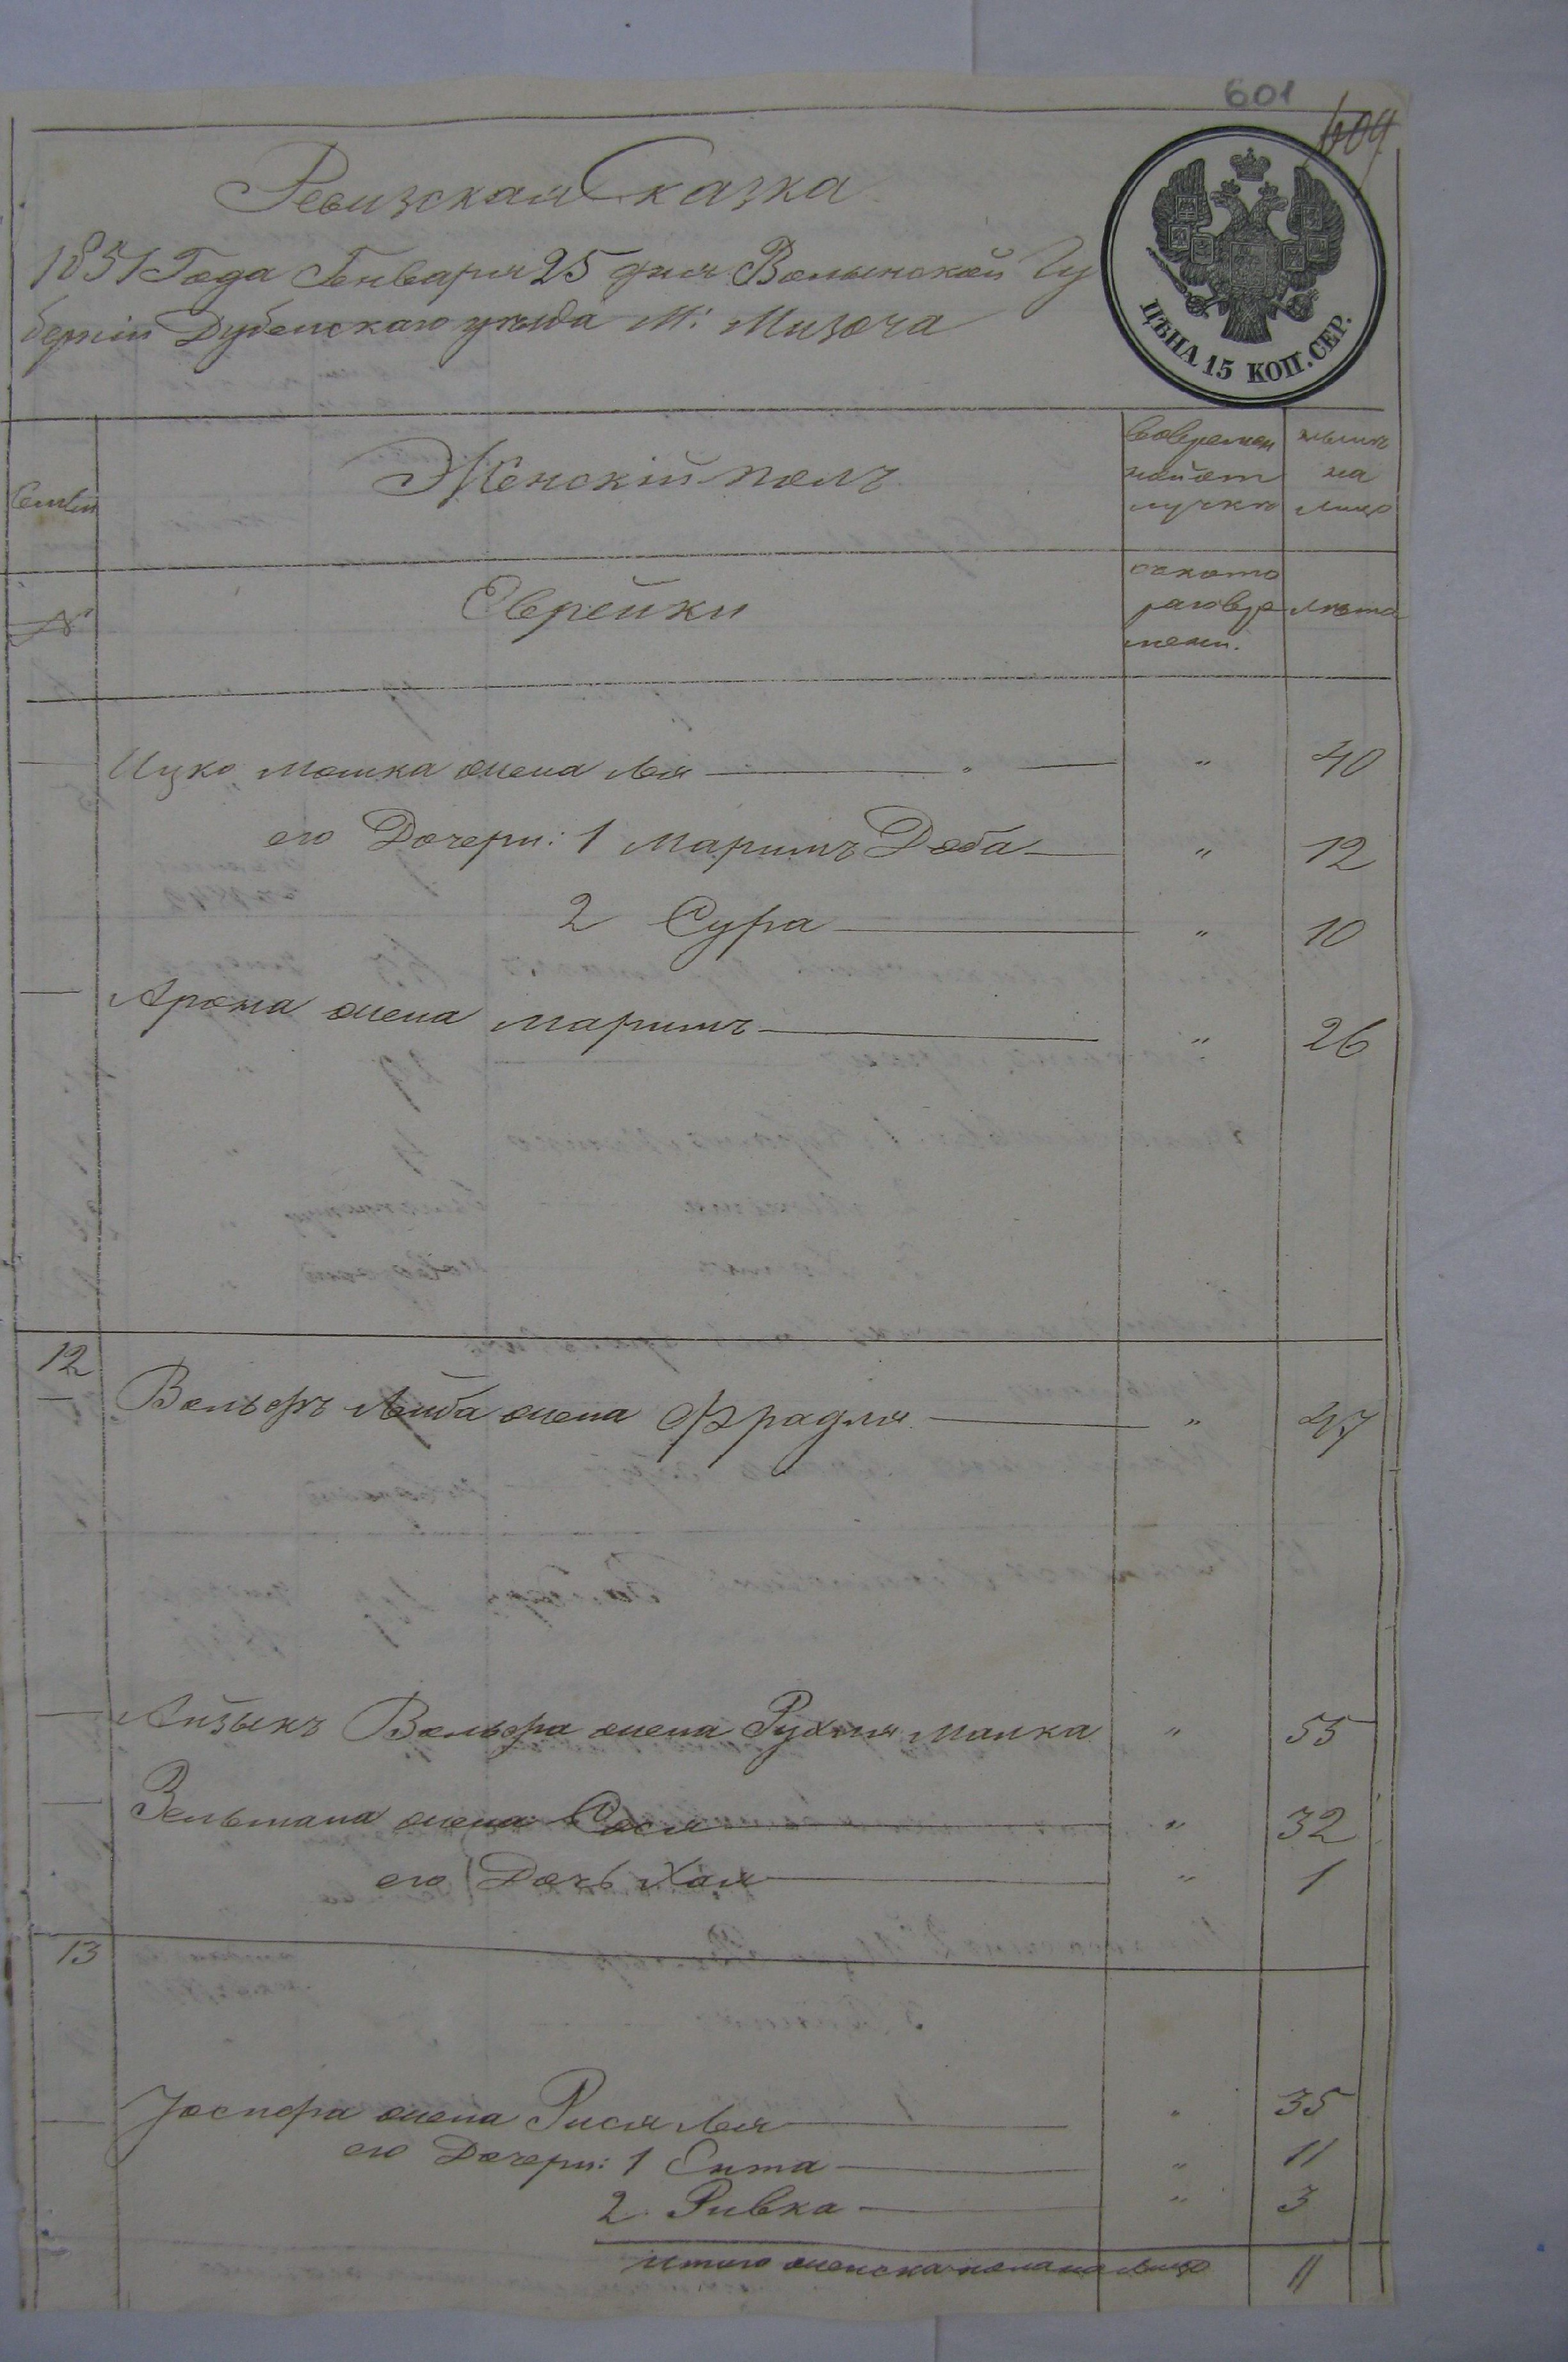 601
609
Ревизская Сказка
1851 Года Генваря 25 дня Волынской Гу
берніи Дубенскаго уѣзда М: Мизоча
ЦѢНА 15 КОП. СЕР.
Семьи
Женскій полъ
вовремен
ной от
лучкѣ
нынѣ
на
лицо
№
Еврейки
с какого
раго вре
мени.
лѣта
Ицко Мошка жена Лея — " 40
его Дочери: 1 Маримъ Доба — " 12
2 Сура — " 10
Арона жена Маримъ — " 26
12
Вольфъ Лейба жена Фрадля — " 47
Айзыкъ Вольфа жена Рухля Малка " 55
Зельмана жена Сося — " 32
его Дочь Хая — " 1
13
Іоспефа жена Рися Лея — " 35
его Дочери: 1 Ента — " 11
2 Ривка — " 3
итого женска пола на лицо 11